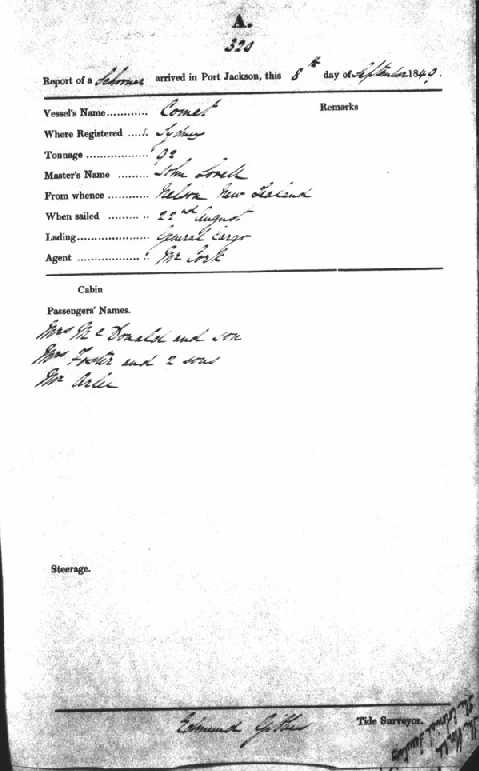 A.
320
Report of a Schooner arrived in Port Jackson, this 8th day of September 1849.
Vessel's Name ............ Comet Remarks
Where Registered ....:. Sydney
Tonnage .................. 92
Master's Name ......... John Lovell
From whence ............ Nelson New Zealand
When sailed ......... .. 22nd August
Lading..................... General Cargo
Agent .................. :. Mr Cork
Cabin
Passengers' Names.
Mrs Mc Donald and son
Mrs Foster and 2 sons
Mr
Steerage.
Edmund Tide Surveyor.